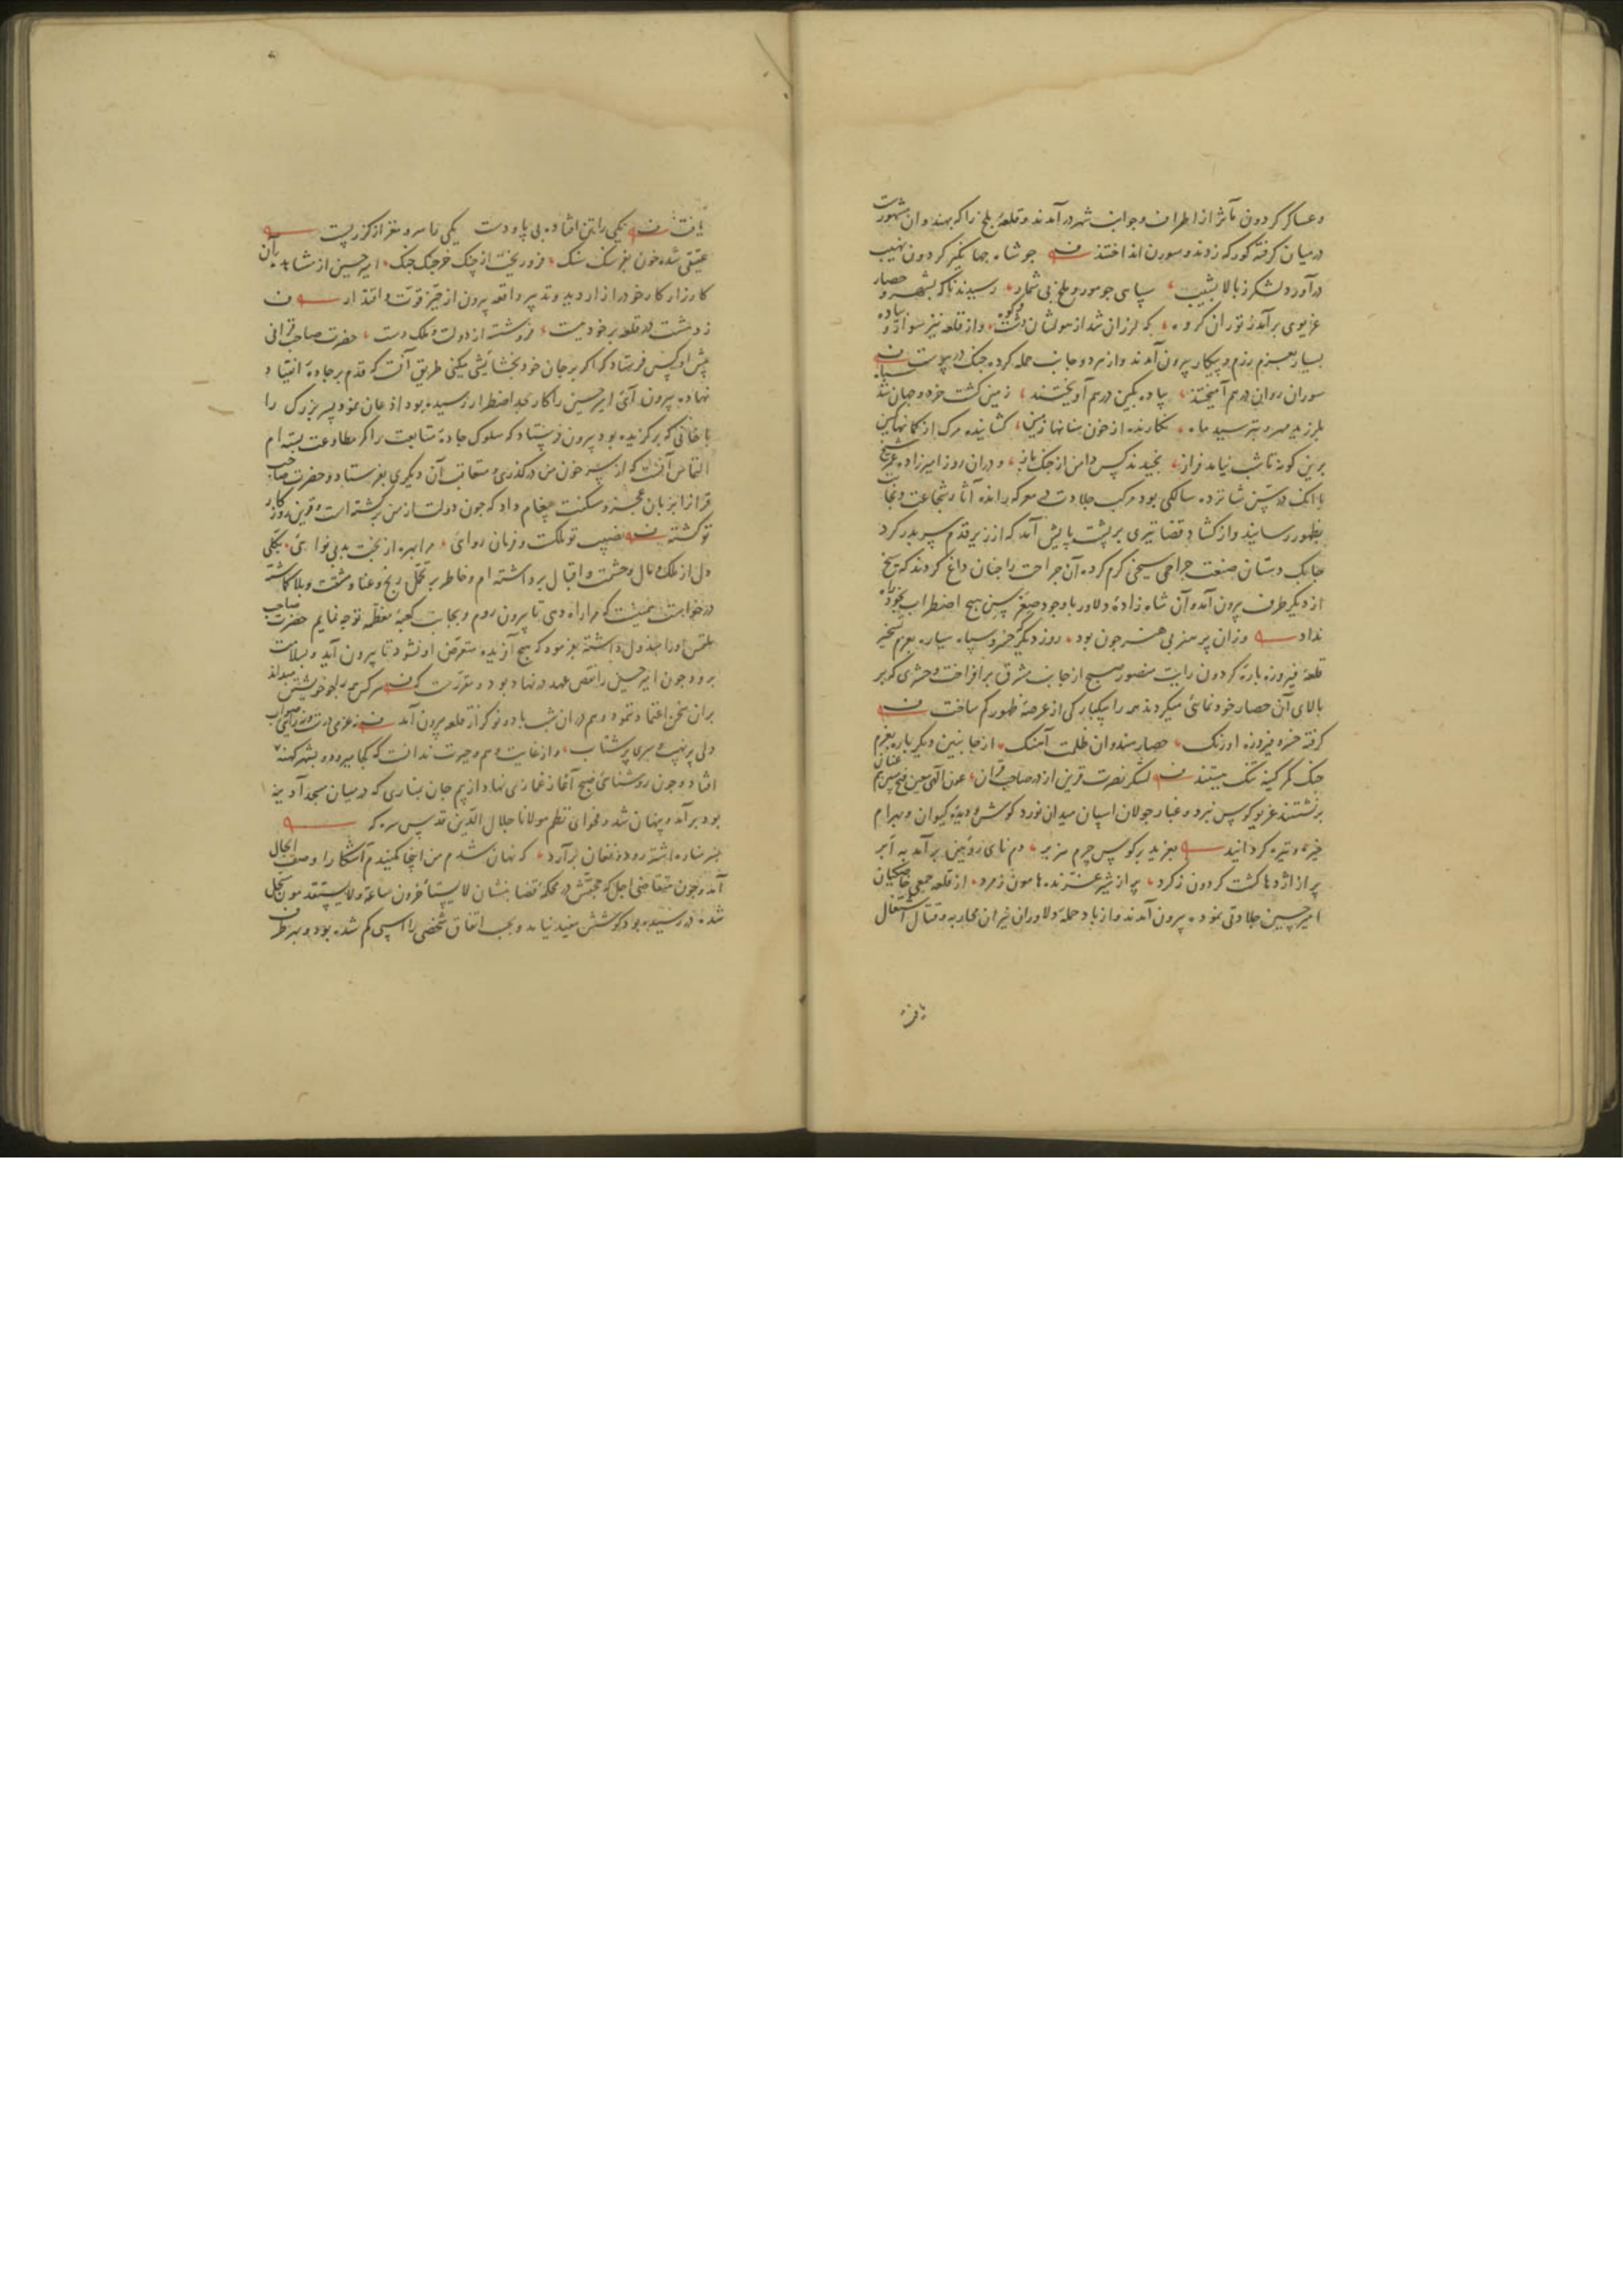 و عساکر گردون مآثر از اطراف و جوانب شهر درآمدند و قلعهٔ بلخ را که بهندوان مشهورست
در میان گرفته کورکه زدند و سورن انداختند چو شاه جهانگیر گردون نهیب
درآورد لشکر ز بالا بشیب سپاهی چو مور و ملخ بی شمار رسیدند ناگه بشهر و حصار
غریوی برآمد ز توران گروه که لرزان شد از هولشان دشت و کوه و از قلعه نیز سوار و پیاده
بسیار بعزم رزم و پیکار بیرون آمدند و از هر دو جانب حمله کرده جنگ در پیوست
سواران روان در هم آمیختند پیاده بکین در هم آویختند زمین گشت خره و جهان شد سیاه
بلرزید مهر و بترسید ماه نگارنده از خون سنانها زمین گشاینده مرگ از کمانها کمین
برین گونه تا شب نیامد فراز نچیدند کس دامن از جنگ باز و در آن روز امیرزاده عمر شیخ
با آنک در سن شانزده سالگی بود مرکب جلادت در معرکه رانده آثار شجاعت و نجابت
بظهور رسانید و از گشاد قضا تیری بر پشت پایش آمد که از زیر قدم سر بدر کرد
چابک دستان صنعت جراحی سیخی گرم کرده آن جراحت را چنان داغ کردند که سیخ
از دیگر طرف بیرون آمد و آن شاه زادهٔ دلاور با وجود صغر سن هیچ اضطراب بخود راه
نداد روز دیگر خسرو سپاه سیاره بعزم تسخیر
قلعهٔ فیروزه بارهٔ گردون رایت منصور صبح از جانب مشرق برافراخت و حشری که بر
بالای آن حصار خود نمائی میکردند همه را بیکبارگی از عرصهٔ ظهور گم ساخت
گرفته خسرو فیروزه اورنگ حصار هندوان ظلمت آهنگ از جانبین دیگر باره بعزم
جنگ کمر کینه تنگ ببستند لشکر نصرت قرین از در صاحب قران عون الهی معین فتح بسر هم عنان
برنشستند غریو کوس نبرد و غبار جولان اسپان میدان نورد گوش و دیدهٔ کیوان و بهرام
خیره و تیره گردانید بغرید بر کوس چرم هزبر دم نای روئین برآمد به ابر
پر از اژدها گشت گردون ز گرد پر از شیر غرنده هامون ز مرد از قلعه جمعی خاصگیان
امیر حسین جلادتی نموده بیرون آمدند و از باد حملهٔ دلاوران نیران محاربه و قتال اشتغال
یافت
یافت یکی را تن افتاده بی پا و دست یکی را سر و مغز از گرز پست
عقیقی شده خون بفرسنگ سنگ فرو ریخت از چنگ خرچنگ چنگ امیر حسین از مشاهده آن
کارزار کار خود را زار دید و تدبیر واقعه بیرون از حیز قوت و اقتدار
ز دهشت در قلعه بر خود ببست فرو شسته از دولت و ملک دست حضرت صاحب قرانی
پیش او کس فرستاد که اگر بر جان خود بخشایشی میکنی طریق آنست که قدم بر جادهٔ انقیاد
نهاده بیرون آئی امیر حسین را کار بحد اضطرار رسیده بود اذعان نمود پسر بزرگ را
با خانی که برگزیده بود بیرون فرستاد که سلوک جادهٔ متابعت را کمر مطاوعت بسته ام
التماس آنست که از سر خون من درگذری و متعاقب آن دیگری بفرستاد و حضرت صاحب
قران را بزبان عجز و مسکنت پیغام داد که چون دولت از من برگشته است و قرین روزگار
تو گشته نصیب تو ملکت و فرمان روائی مرا بهره از بخت بد بی نوائی بکلی
دل از ملک و مال و حشمت و اقبال برداشته ام و خاطر بر تحمل رنج و عنا و مشقت و بلا گماشته
درخواست همینست که مرا راه دهی تا بیرون روم و بجانب کعبهٔ معظمه توجه نمایم حضرت صاحب
ملتمس او را مبذول داشته بفرمود که هیچ آفریده متعرض او نشود تا بیرون آید و بسلامت
برود و چون امیر حسین را نقص عهد در نهاد بود و مقررست که هر کس همه را چو خویشتن میداند
بران سخن اعتماد ننمود و هم در ان شب با دو نوکر از قلعه بیرون آمد نه عزمی درست و نه رایی صواب
دلی پر نهیب و سری پر شتاب و از غایت وهم و حیرت ندانست که کجا میرود و بشهر کهنه
افتاد و چون روشنائی صبح آغاز غمازی نهاد از بیم جان بمناری که در میان مسجد آدینه
بود برآمد و پنهان شد و فحوای نظم مولانا جلال الدین قدس سره که
بسر مناره اشتر رود و فغان برآرد که نهان شدم من اینجا مکنیدم آشکارا وصف الحال
آمد و چون متقاضی اجل که حجتش در محکمهٔ قضا بنشان لا یستأخرون ساعة و لا یستقدمون مسجل
شده در رسیده بود کوشش مفید نیامد و بحسب اتفاق شخصی را اسپی گم شده بود و بهر طرف